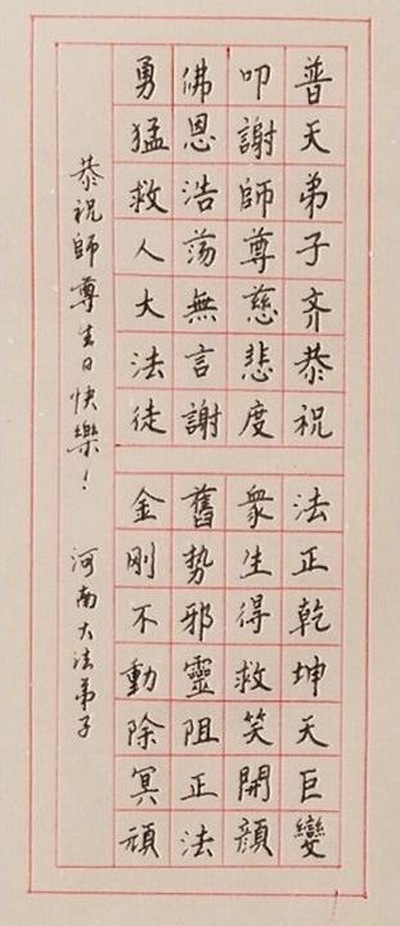 普天弟子齐恭祝
叩謝師尊慈悲度
佛恩浩蕩無言謝
勇猛救人大法徒
法正乾坤天巨變
衆生得救笑開顔
舊势邪靈阻正法
金刚不動除冥頑
恭祝師尊生日快樂！
河南大法弟子